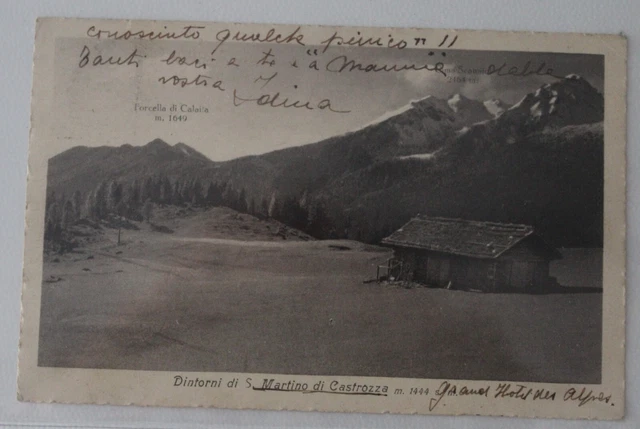 conoscinto qualck " !!
Tanti baci a te e "a Mamma dalla
vostra Idina
Forcella di Calaita
m. 1649
Dintorni di S. Martino di Castrozza m. 1444
Grand Hotel des Alpes.